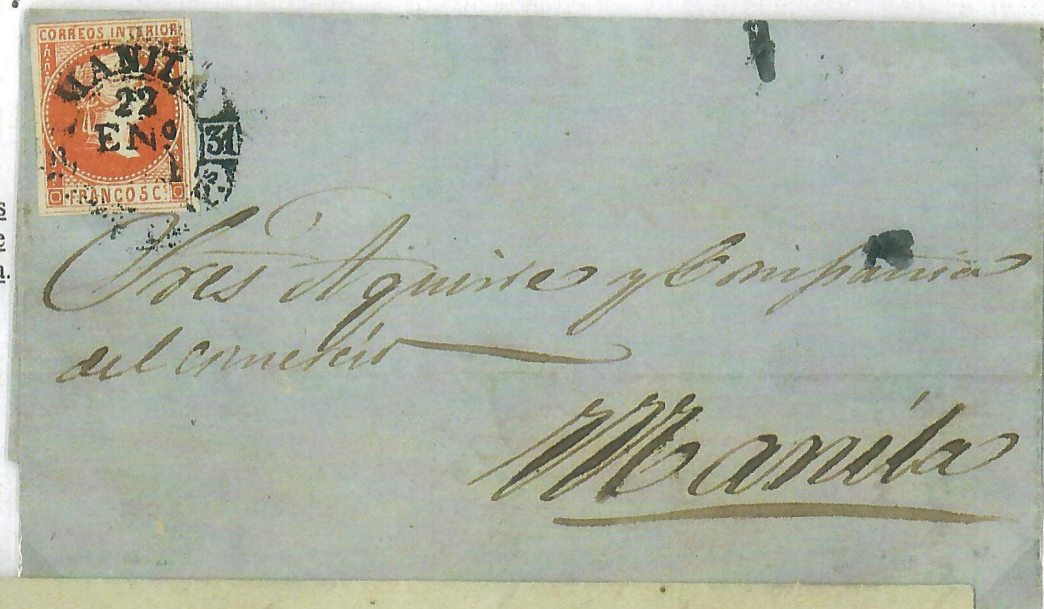 CORREOS INTERIOR
MANILA
22
ENº
31
FRANCO 5 Cs.
Sres Aguirre y Compañia
del comercio
Manila
s
e
a.